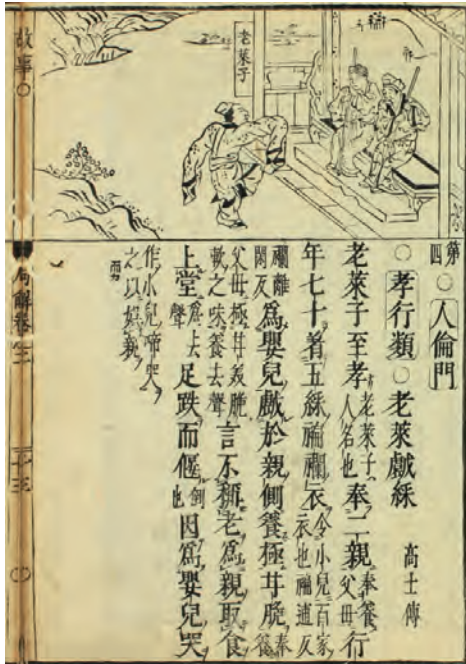 老萊子
故事○
句解卷三
第四○人倫門
○孝行類○老萊戲綵 高士傳
老萊子至孝老萊子古人名也奉二親奉養父母行
年七十著五綵褊襴衣今小兒百家衣也褊逋反
襴離閑反爲嬰兒戲於親側養極甘脆奉養
父母極甘美脆軟之味養去聲言不稱老爲親取食
上堂爲去聲足跌而偃倒也因爲嬰兒哭
作小兒啼哭之以娛親